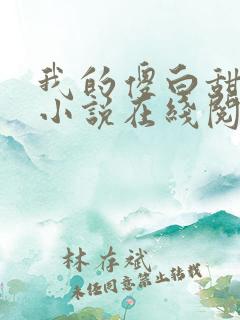 我的傻白甜
小说在线阅
林存斌
未经同意禁止转载